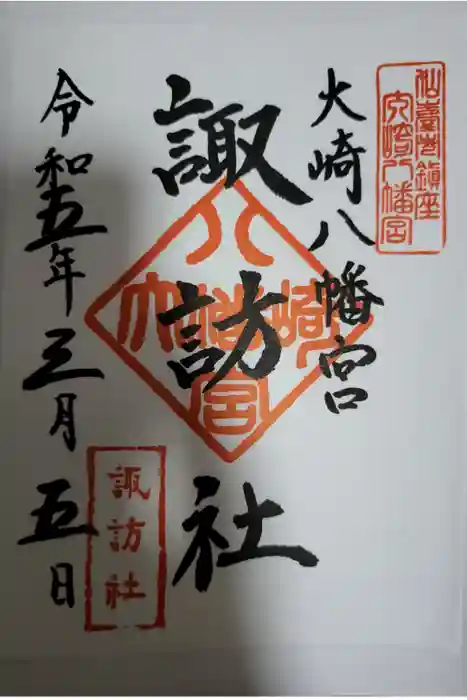 仙臺 鎮座
大崎八幡宮
大崎八幡宮
諏訪社
大崎八幡宮
令和五年三月五日
諏訪社